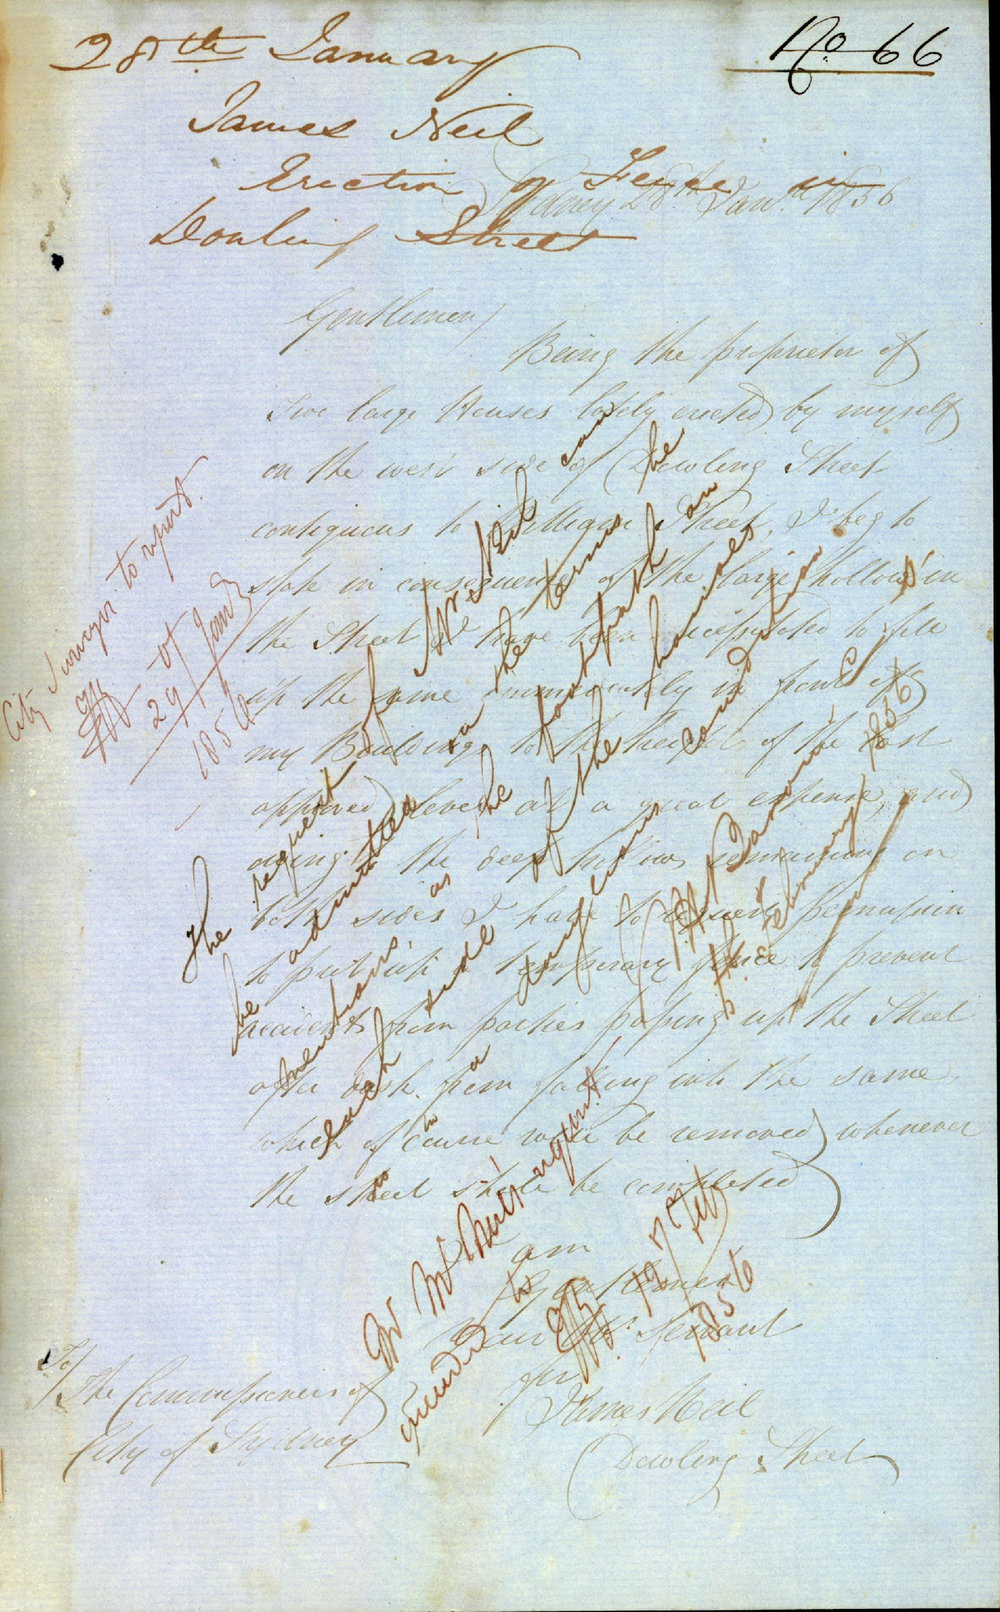 28th January
No 66
James Neil
Erection of Fence in
Dowling Street
Sydney 28th Jany 1856
Gentlemen,
Being the proprietor of
two large Houses lately erected by myself
on the west side of Dowling Street
contiguous to William Street, I beg to
state in consequence of the large hollows in
the Street I have been necessitated to fill
up the same immediately in front of
my Buildings to the height of the last
approved level at a great expense, and
owing to the deep hollows remaining on
both sides I have to request permission
to put up a temporary fence to prevent
accidents from parties passing up the Street
after dark from falling into the same
which of course will be removed whenever
the street shall be completed
I am
Gentlemen
Your Obt Servant
for
James Neil
Dowling Street
To/
The Commissioners of
City of Sydney
City Surveyor to report.
29 of Jany
1856
The request of Mr Neil can
be admitted on the terms he
mentions, as the footpath on
each side of the houses
is in a dangerous condition
5th February 1856
Mr Neil's request
granted
19 Feby
1856